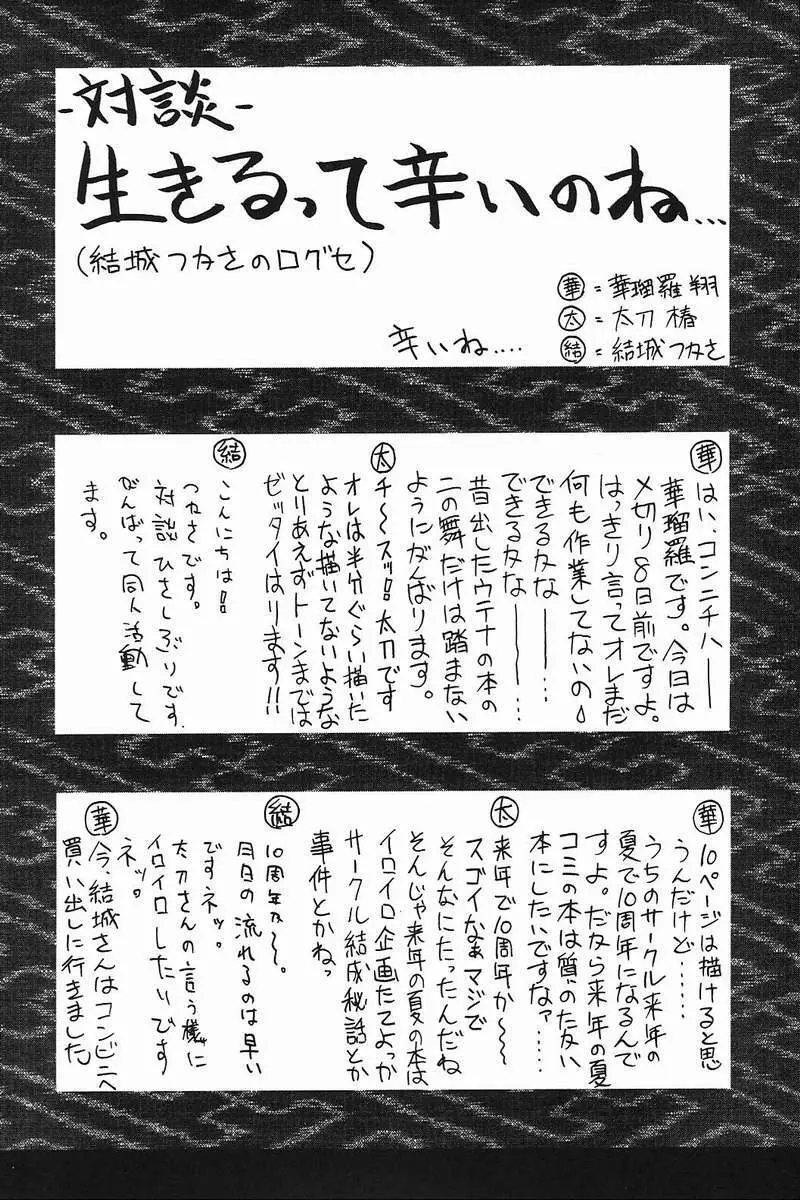 -対談-
生きるって辛いのね…
(結城つかさの口グセ)
辛いね‥‥
華=華瑠羅翔
太=太刀椿
結=結城つかさ
華
はい、コンニチハ――
華瑠羅です。今日は
〆切り8日前ですよ。
はっきり言ってオレまだ
何も作業してないの
できるかな―――‥‥
できるかな―――‥‥
昔出したウテナの本の
二の舞だけは踏まない
ようにがんばります。
太
チ〜〜スッ!!太刀です
オレは半分ぐらい描いた
ような描いてないような
とりあえずトーンまでは
ゼッタイはります!!
結
こんにちは!!
つかさです。
対談ひさしぶりです。
がんばって同人活動して
ます。
華
10ページは描けると思
うんだけど‥‥‥
うちのサークル来年の
夏で10周年になるんで
すよ。だから来年の夏
コミの本は質のたかい
本にしたいですなァ‥‥‥
太
来年で10周年か〜〜
スゴイなぁマジで
そんなにたったんだね
そんじゃ来年の夏の本は
イロイロ企画たてよっか
サークル結成秘話とか
事件とかねっ
結
10周年か〜〜。
月日の流れるのは早い
ですネッ。
太刀さんの言う様に
イロイロしたいです
ネッ。
華
今、結城さんはコンビニへ
買い出しに行きました